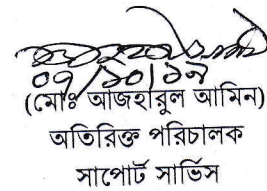 ০৭/১০/১৯
(মোঃ আজহারুল আমিন)
অতিরিক্ত পরিচালক
সাপোর্ট সার্ভিস